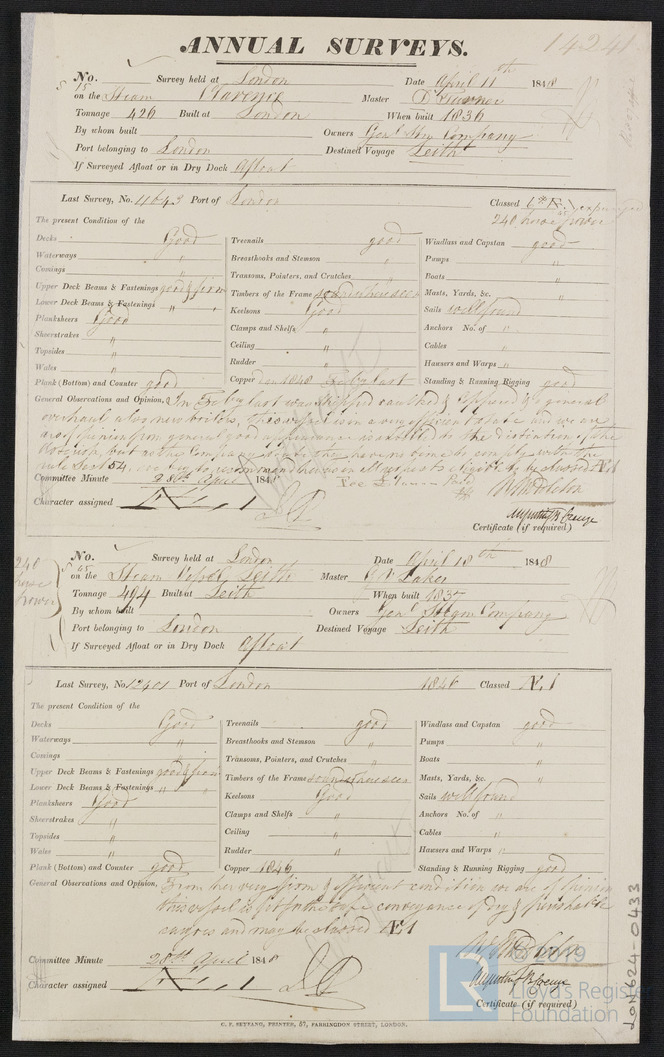 ANNUAL SURVEYS.
14241
No. Survey held at London Date April 11th 1848
on the Steam Clarence Master
Tonnage 426 Built at London When built 1836
By whom built Owners Genl Company
Port belonging to London Destined Voyage Leith
If Surveyed Afloat or in Dry Dock Afloat
Last Survey, No. 4643 Port of London Classed
240 horse power
The present Condition of the
Decks Good Treenails good Windlass and Capstan good
Waterways " Breasthooks and Stemson " Pumps "
Comings " Transoms, Pointers, and Crutches " Boats "
Upper Deck Beams & Fastenings good & firm Timbers of the Frame Masts, Yards, &c. "
Lower Deck Beams & Fastenings " Keelsons Good Sails well found
Planksheers Good Clamps and Shelfs " Anchors No. of "
Sheerstrakes " Ceiling " Cables "
Topsides " Rudder " Hawsers and Warps "
Wales " Copper 1848
Plank (Bottom) and Counter good Standing & Running Rigging good
General Observations and Opinion, In last was stripped caulked & & general
overhaul also new boilers, this vessel is in a very efficient state and we are
of opinion from general good appearance is entitled to the distinction of the
but as the Company have to comply with the
rule Sect 54, to recommend her in all respects eligible to be classed Æ1
Committee Minute 28th April 1848
Character assigned
Certificate (if required)
240
horse
power
No. Survey held at London Date April 18th 1848
on the Steam Vessel Leith Master
Tonnage 494 Built at Leith When built 1837
By whom built Owners Genl Steam Company
Port belonging to London Destined Voyage Leith
If Surveyed Afloat or in Dry Dock Afloat
Last Survey, No. 12401 Port of London 1846 Classed Æ.1
The present Condition of the
Decks Good Treenails good Windlass and Capstan good
Waterways " Breasthooks and Stemson " Pumps "
Comings " Transoms, Pointers, and Crutches " Boats "
Upper Deck Beams & Fastenings good & firm Timbers of the Frame Masts, Yards, &c. "
Lower Deck Beams & Fastenings " " Keelsons Good Sails well found
Planksheers Good Clamps and Shelfs " Anchors No. of "
Sheerstrakes " Ceiling " Cables "
Topsides " Rudder " Hawsers and Warps "
Wales " Copper 1846 Standing & Running Rigging good
Plank (Bottom) and Counter good
General Observations and Opinion, From her very firm & efficient condition we are of opinion
this vessel is fit for the safe conveyance of dry & perishable
cargoes and may be classed Æ1
Committee Minute 28th April 1848
Character assigned
Certificate (if required)
C. F. SEYFANG, PRINTER, 57, FARRINGDON STREET, LONDON.
LON624-0433
LR © 2019
Lloyd's Register
Foundation